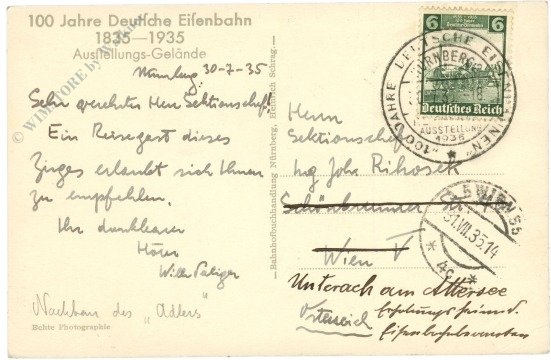 100 Jahre Deutsche Eisenbahn
1835—1935
Ausstellungs-Gelände
Nürnberg 30-7-35
Sehr geehrter Herr Sektionschef
Ein Reisegast dieses
Zuges erlaubt sich Ihnen
zu empfehlen.
Ihr dankbarer
Nachbau des „Adlers"
Echte Photographie
© WIMPORE by
Bahnhofbuchhandlung Nürnberg, Heinrich Schrag.
6 6
Deutsches Reich
"100 JAHRE DEUTSCHE EISENBAHNEN"
NÜRNBERG
AUSSTELLUNG
1935
Herrn
Sektionschef
Ing Joh. Rihosek
Wien V
WIEN 55
31.VII.35.14
* 4c *
Unterach am Attersee
Österreich